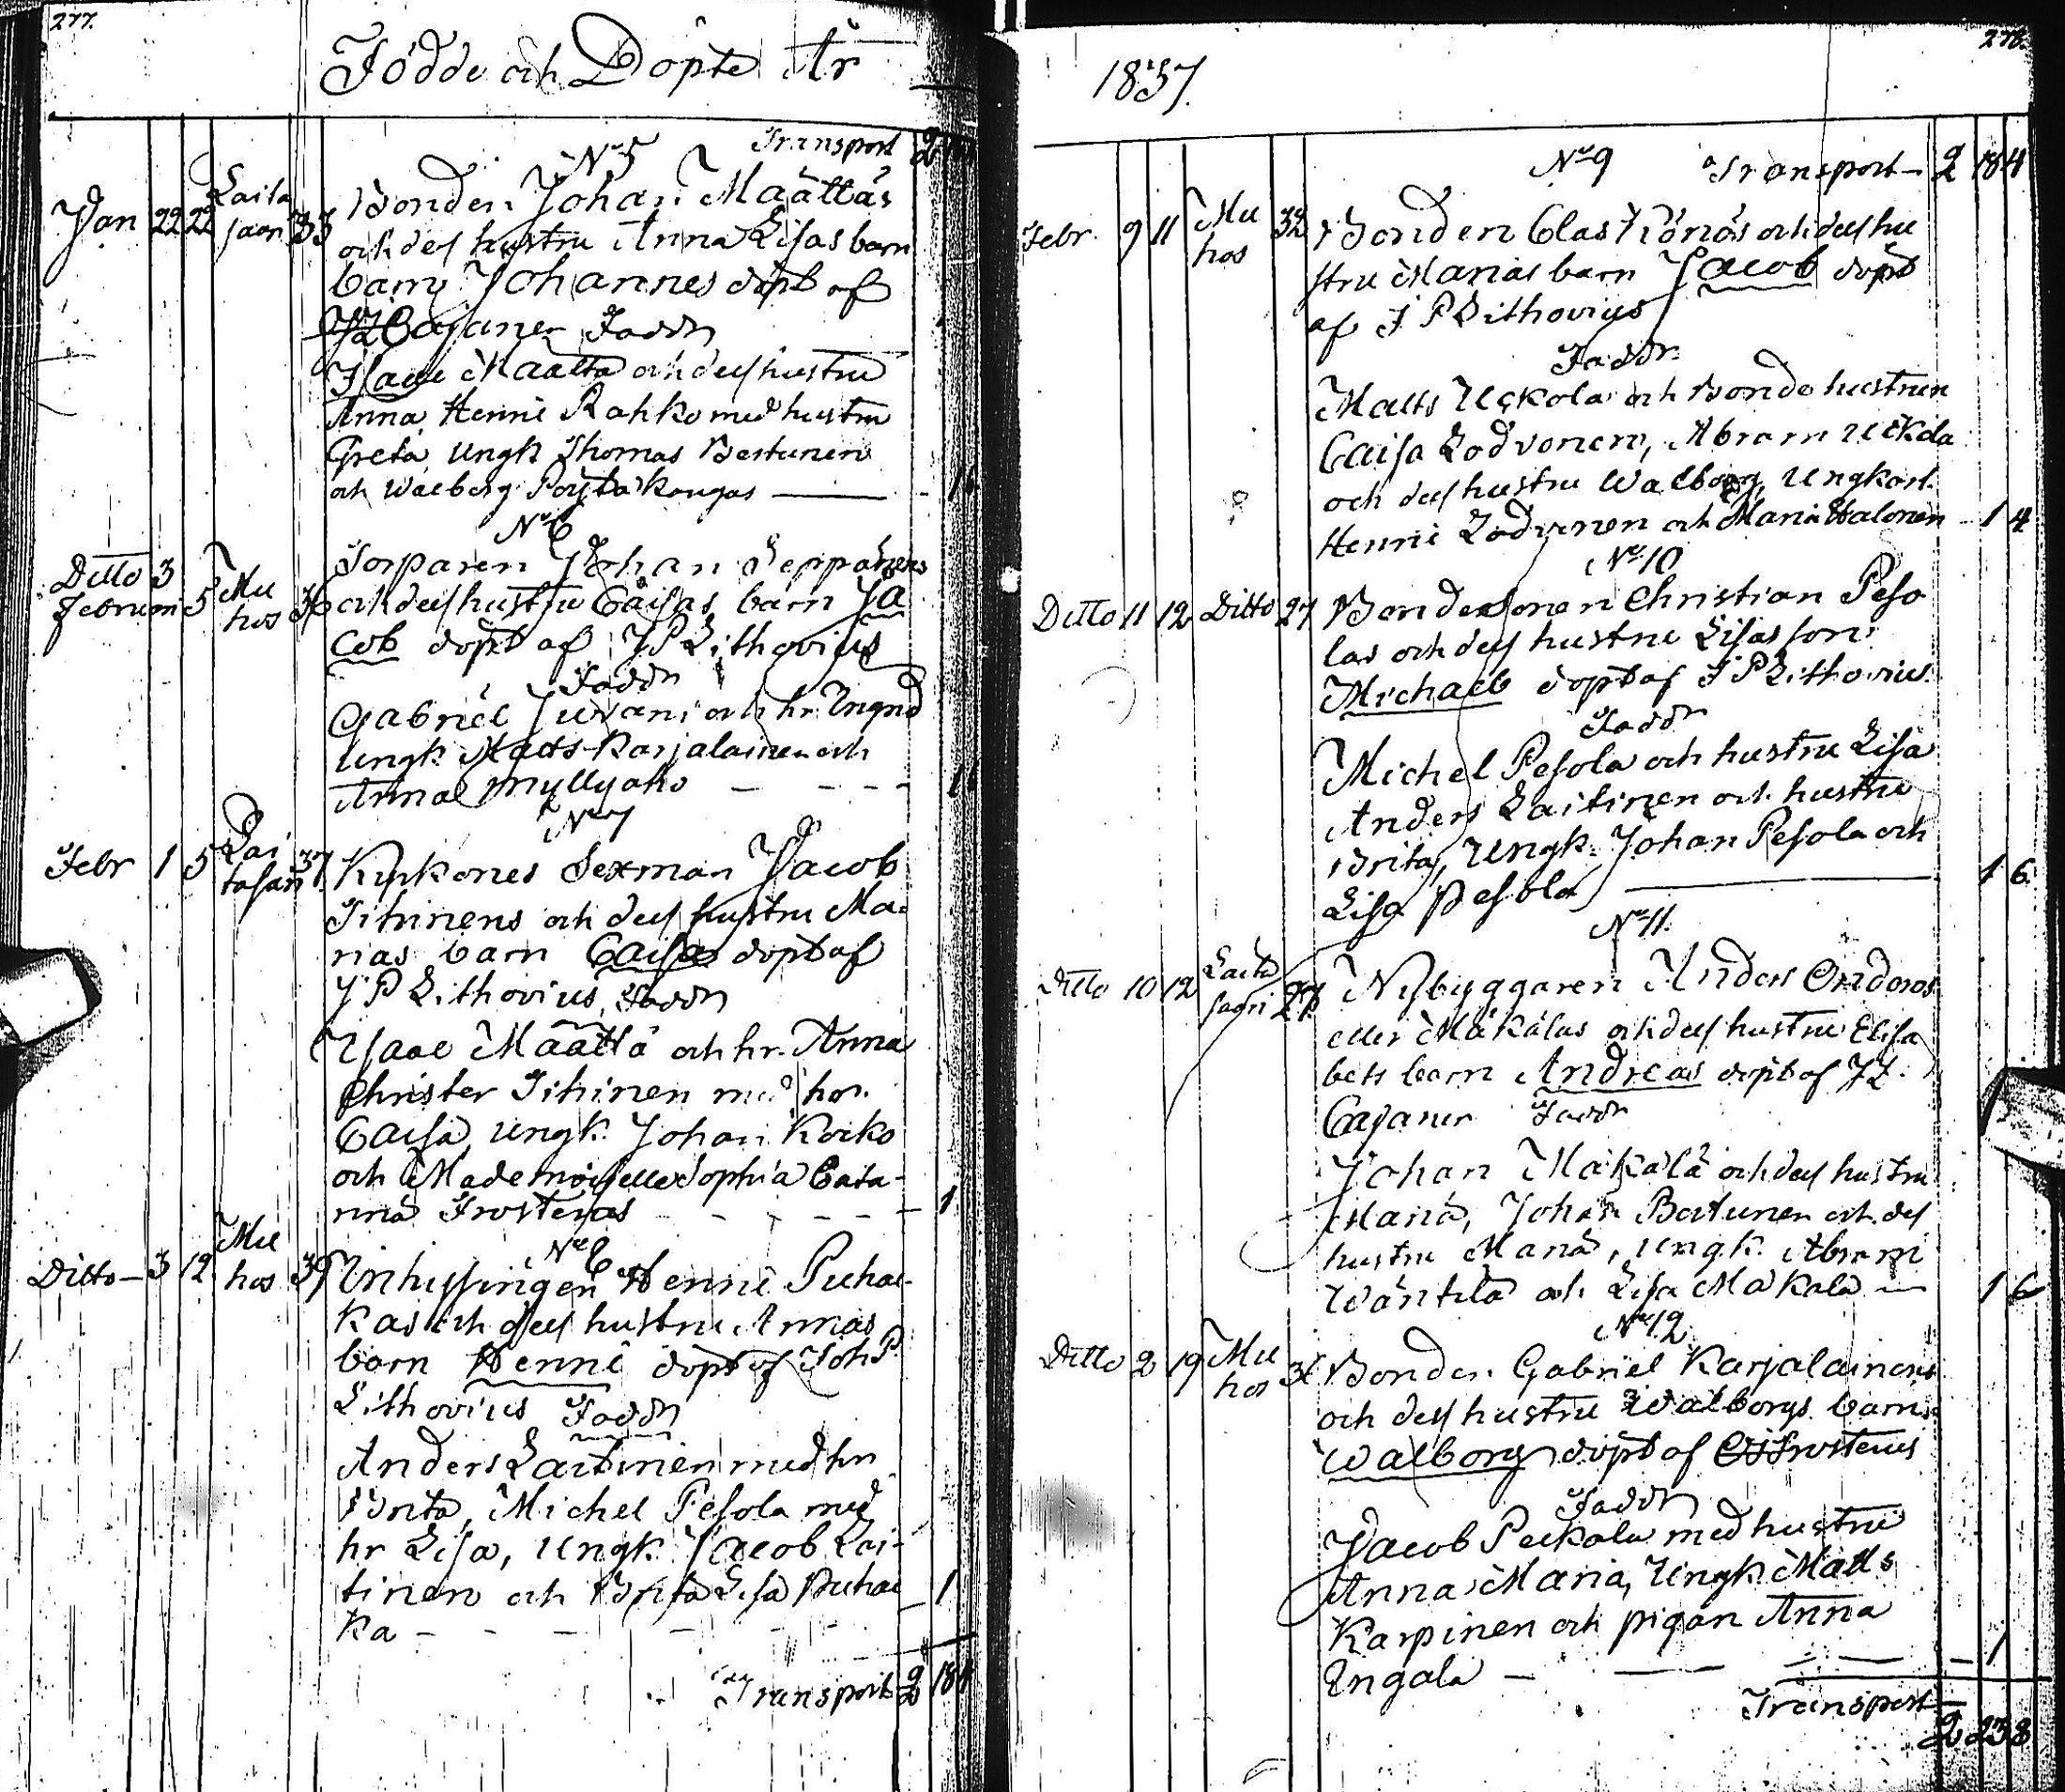 277.
Födde och Döpte År
Transport 2
N=o 5
Jan 22 22 Laita saari 33 Bonden Johan Määttäs
och dess hustru Anna Lisas barn
barn Johannes döpt af
JL Cajaner Faddr
Isaac Määttä och dess hustru
Anna, Henric Rahko med hustru
Greta, Ungk Thomas Bertunen
och Walborg Pöytäkangas
N=o 6
Ditto 3 Februari 5 Mu hos 36 Torparen Johan Seppänens
och dess hustru Caisas barn Ja
cob döpt af J P Lithovius
Faddr
Gabriel Juvani och hr. Ingrid
Ungk Matts Karjalainen och
Anna Myllyaho
N=o 7
Febr 1 5 Lai tasari 37 Kyrkones Sexman Jacob
Tihinens och dess hustru Ma-
rias barn Caisa döpt af
J P Lithovius, Faddr
Isaac Määttä och hr. Anna
Christer Tihinen med hr.
Caisa, Ungk. Johan Koiko
och Mademoiselle Sophia Cata-
rina Frosterus 1
N=o 8
Ditto 3 12 Mu hos 39 Inhysingen Henric Puhak-
kas och dess hustru Annas
barn Henric döpt af Joh P
Lithovius Faddr
Anders Laitinen med hr
Brita, Michel Pesola med
hr Lisa, Ungk. Jacob Lai-
tinen och Brita Lisa Puhak 1
ka
Transport 2 184
278.
1837.
N=o 9 Transport 2 184
Febr. 9 11 Mu hos 32 Bonden Clas Rönäs och dess hu
stru Marias barn Jacob döpt
af J P Lithovius
Faddr
Matts Uckola och Bonde hustrun
Caisa Lodvonen, Abram Uckola
och dess hustru Walborg, Ungkarl.
Henric Lodvonen och Maria Halonen 1 4
N=o 10
Ditto 11 12 Ditto 27 Bondesonen Christian Peso
las och dess hustru Lisas son
Michael döpt af J P Lithovius
Faddr
Michel Pesola och hustru Lisa
Anders Laitinen och hustru
Brita, Ungk. Johan Pesola och
Lisa Pesola 1 6
N=o 11.
Ditto 10 12 Laita saari 27 Nybyggaren Anders Onderos
eller Mäkäläs och dess hustru Elisa
bets barn Andreas döpt af JL.
Cajaner Faddr
Johan Mäkälä och dess hustru
Maria, Johan Bertunen och dess
hustru Maria, Ungk. Abram
Wäntilä och Lisa Mäkälä 1 6
N=o 12
Ditto 2 19 Mu hos 31 Bonden Gabriel Karjalainens
och dess hustru Walborgs barn
Walborg döpt af Frosterus
Faddr
Jacob Peckala med hustru
Anna Maria, Ungk. Matts
Karpinen och pigan Anna
Engala 1
Transport
2 238